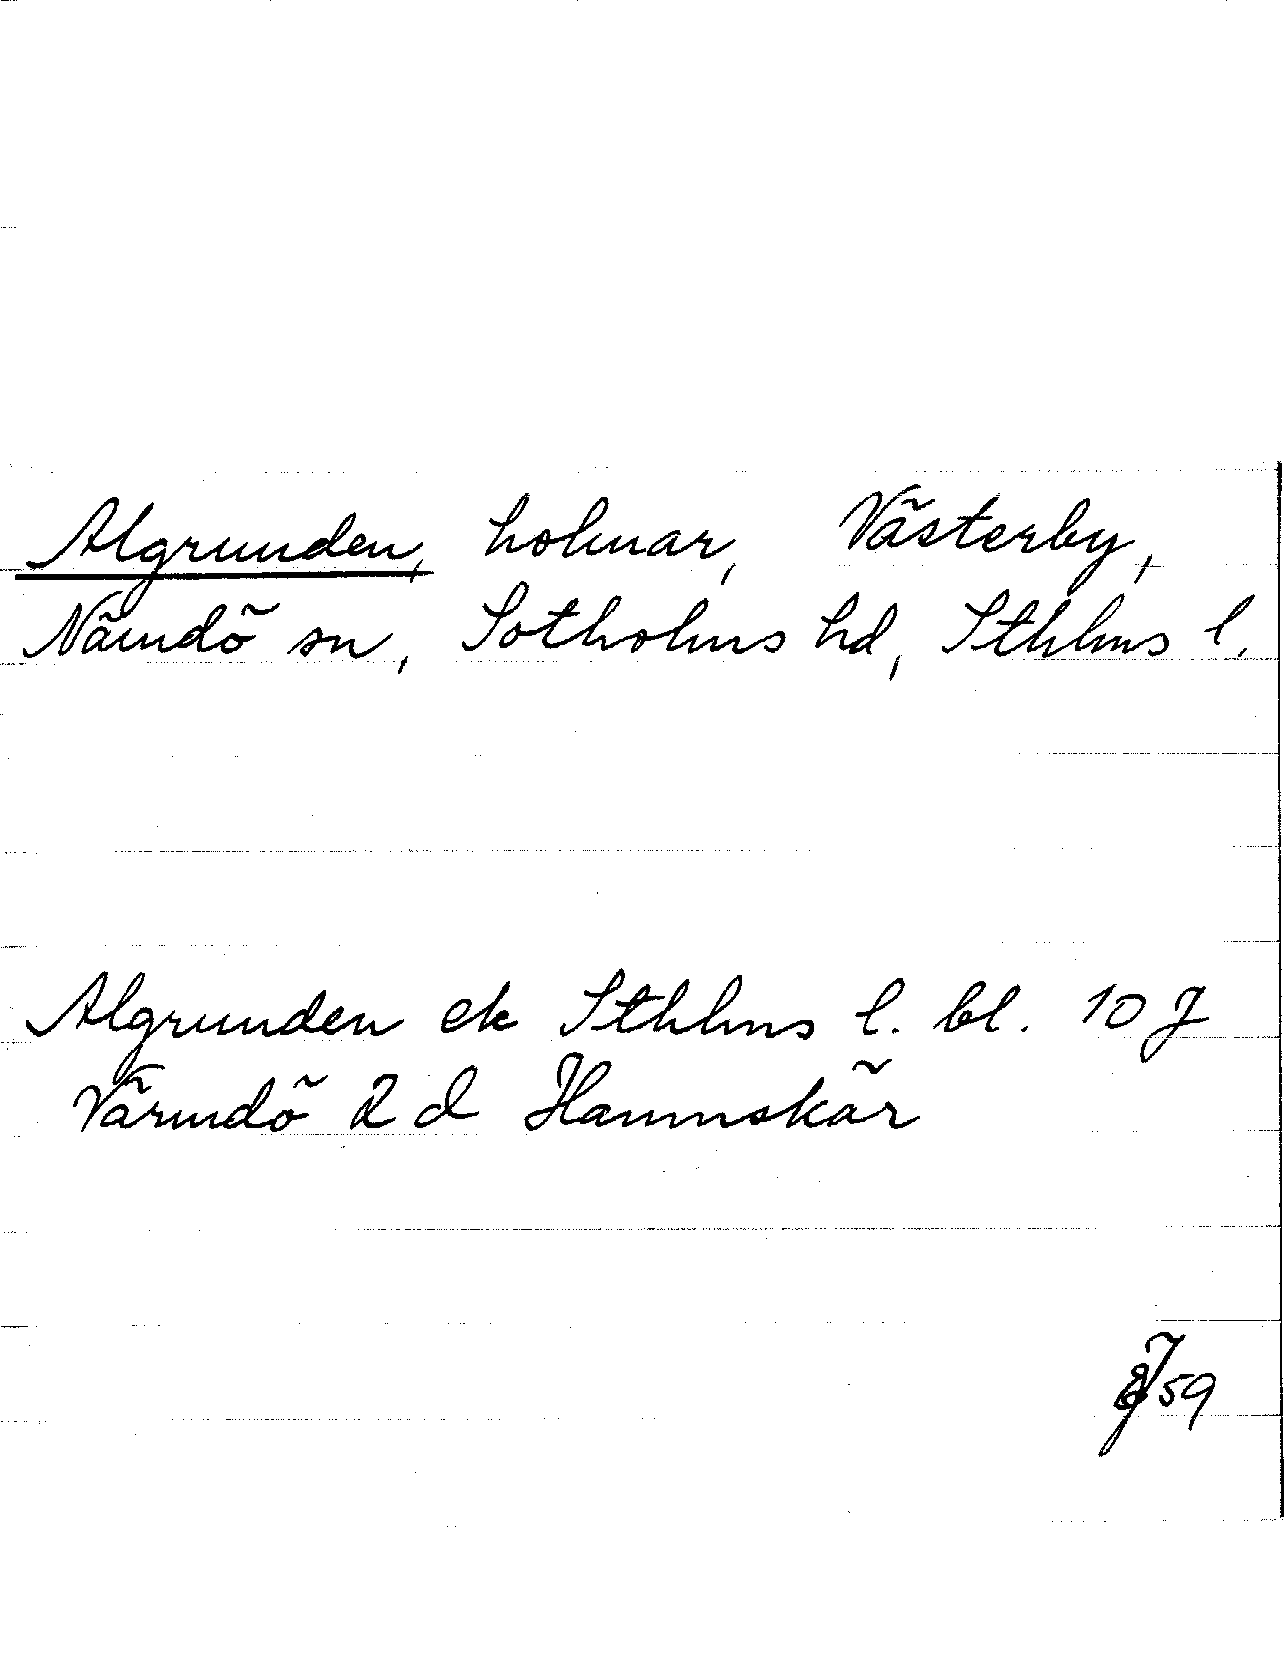 Algrunden, holmar, Västerby,
Nämdö sn, Sotholms hd, Sthlms l.
Algrunden ek Sthlms l. bl. 10 J
Värmdö 2 d Hamnskär
59